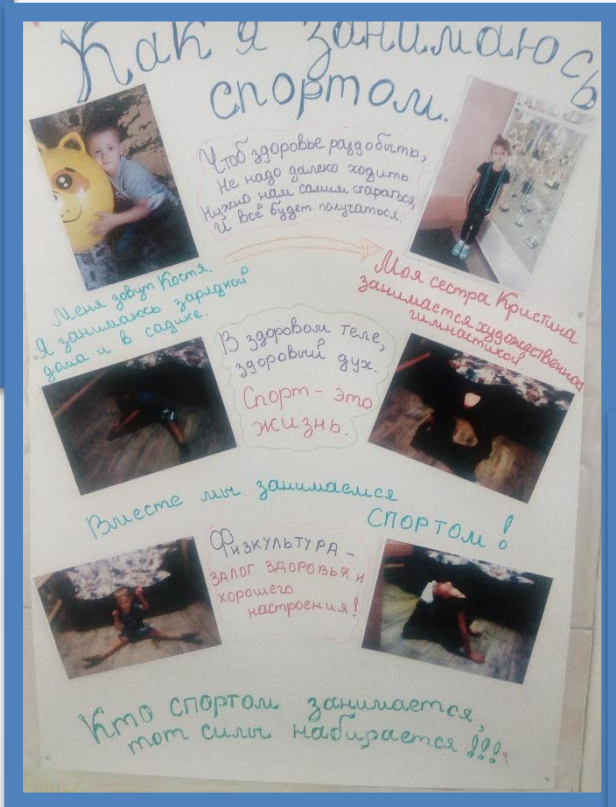 Как я занимаюсь
спортом.
Чтоб здоровье раздобыть,
Не надо далеко ходить
Нужно нам самим стараться,
И всё будет получаться.
Меня зовут Костя.
Я занимаюсь зарядкой
дома и в садике.
Моя сестра Кристина
занимается художественной
гимнастикой.
В здоровом теле,
здоровый дух.
Спорт - это
жизнь.
Вместе мы занимаемся
СПОРТОМ!
Физкультура -
залог здоровья и
хорошего
настроения!
Кто спортом занимается,
тот силы набирается!!!